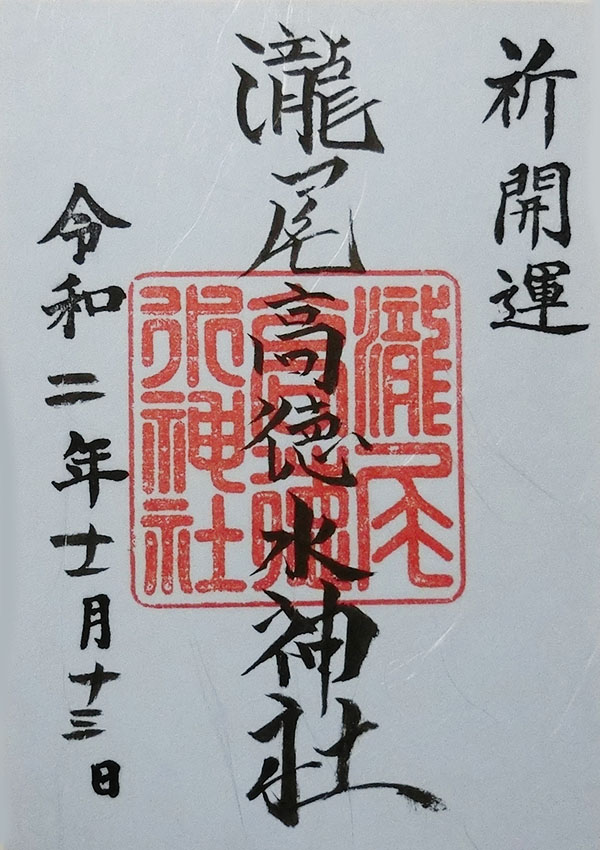 祈開運
瀧尾高徳水神社
瀧尾
水神社
令和二年十一月十三日